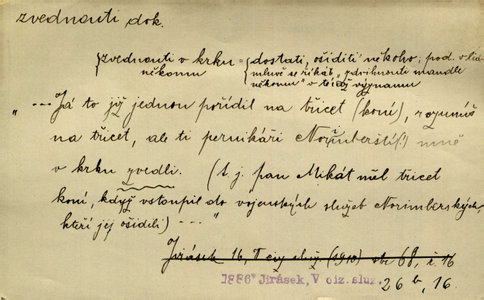 zvednouti dok.
zvednouti v krku = dostati, ošiditi někoho; pod. v lid.
někomu mluvě se říkát „zdvihnouti mandle
někomu" v též významu
„--- Já to jej jednou pořídil na třicet (koní), rozumíš
na třicet, ale ti pernikáři Norimberští(!) mně
v krku zvedli. (t. j. pan Mikát měl třicet
koní, když vstoupil do vojenských služeb Norimberských,
kteří jej ošidili) --- "
Jirásek 16, V ciz. služ. (1910) str. 68, i 16
1886 Jirásek, V ciz. služ.
26 b, 16.